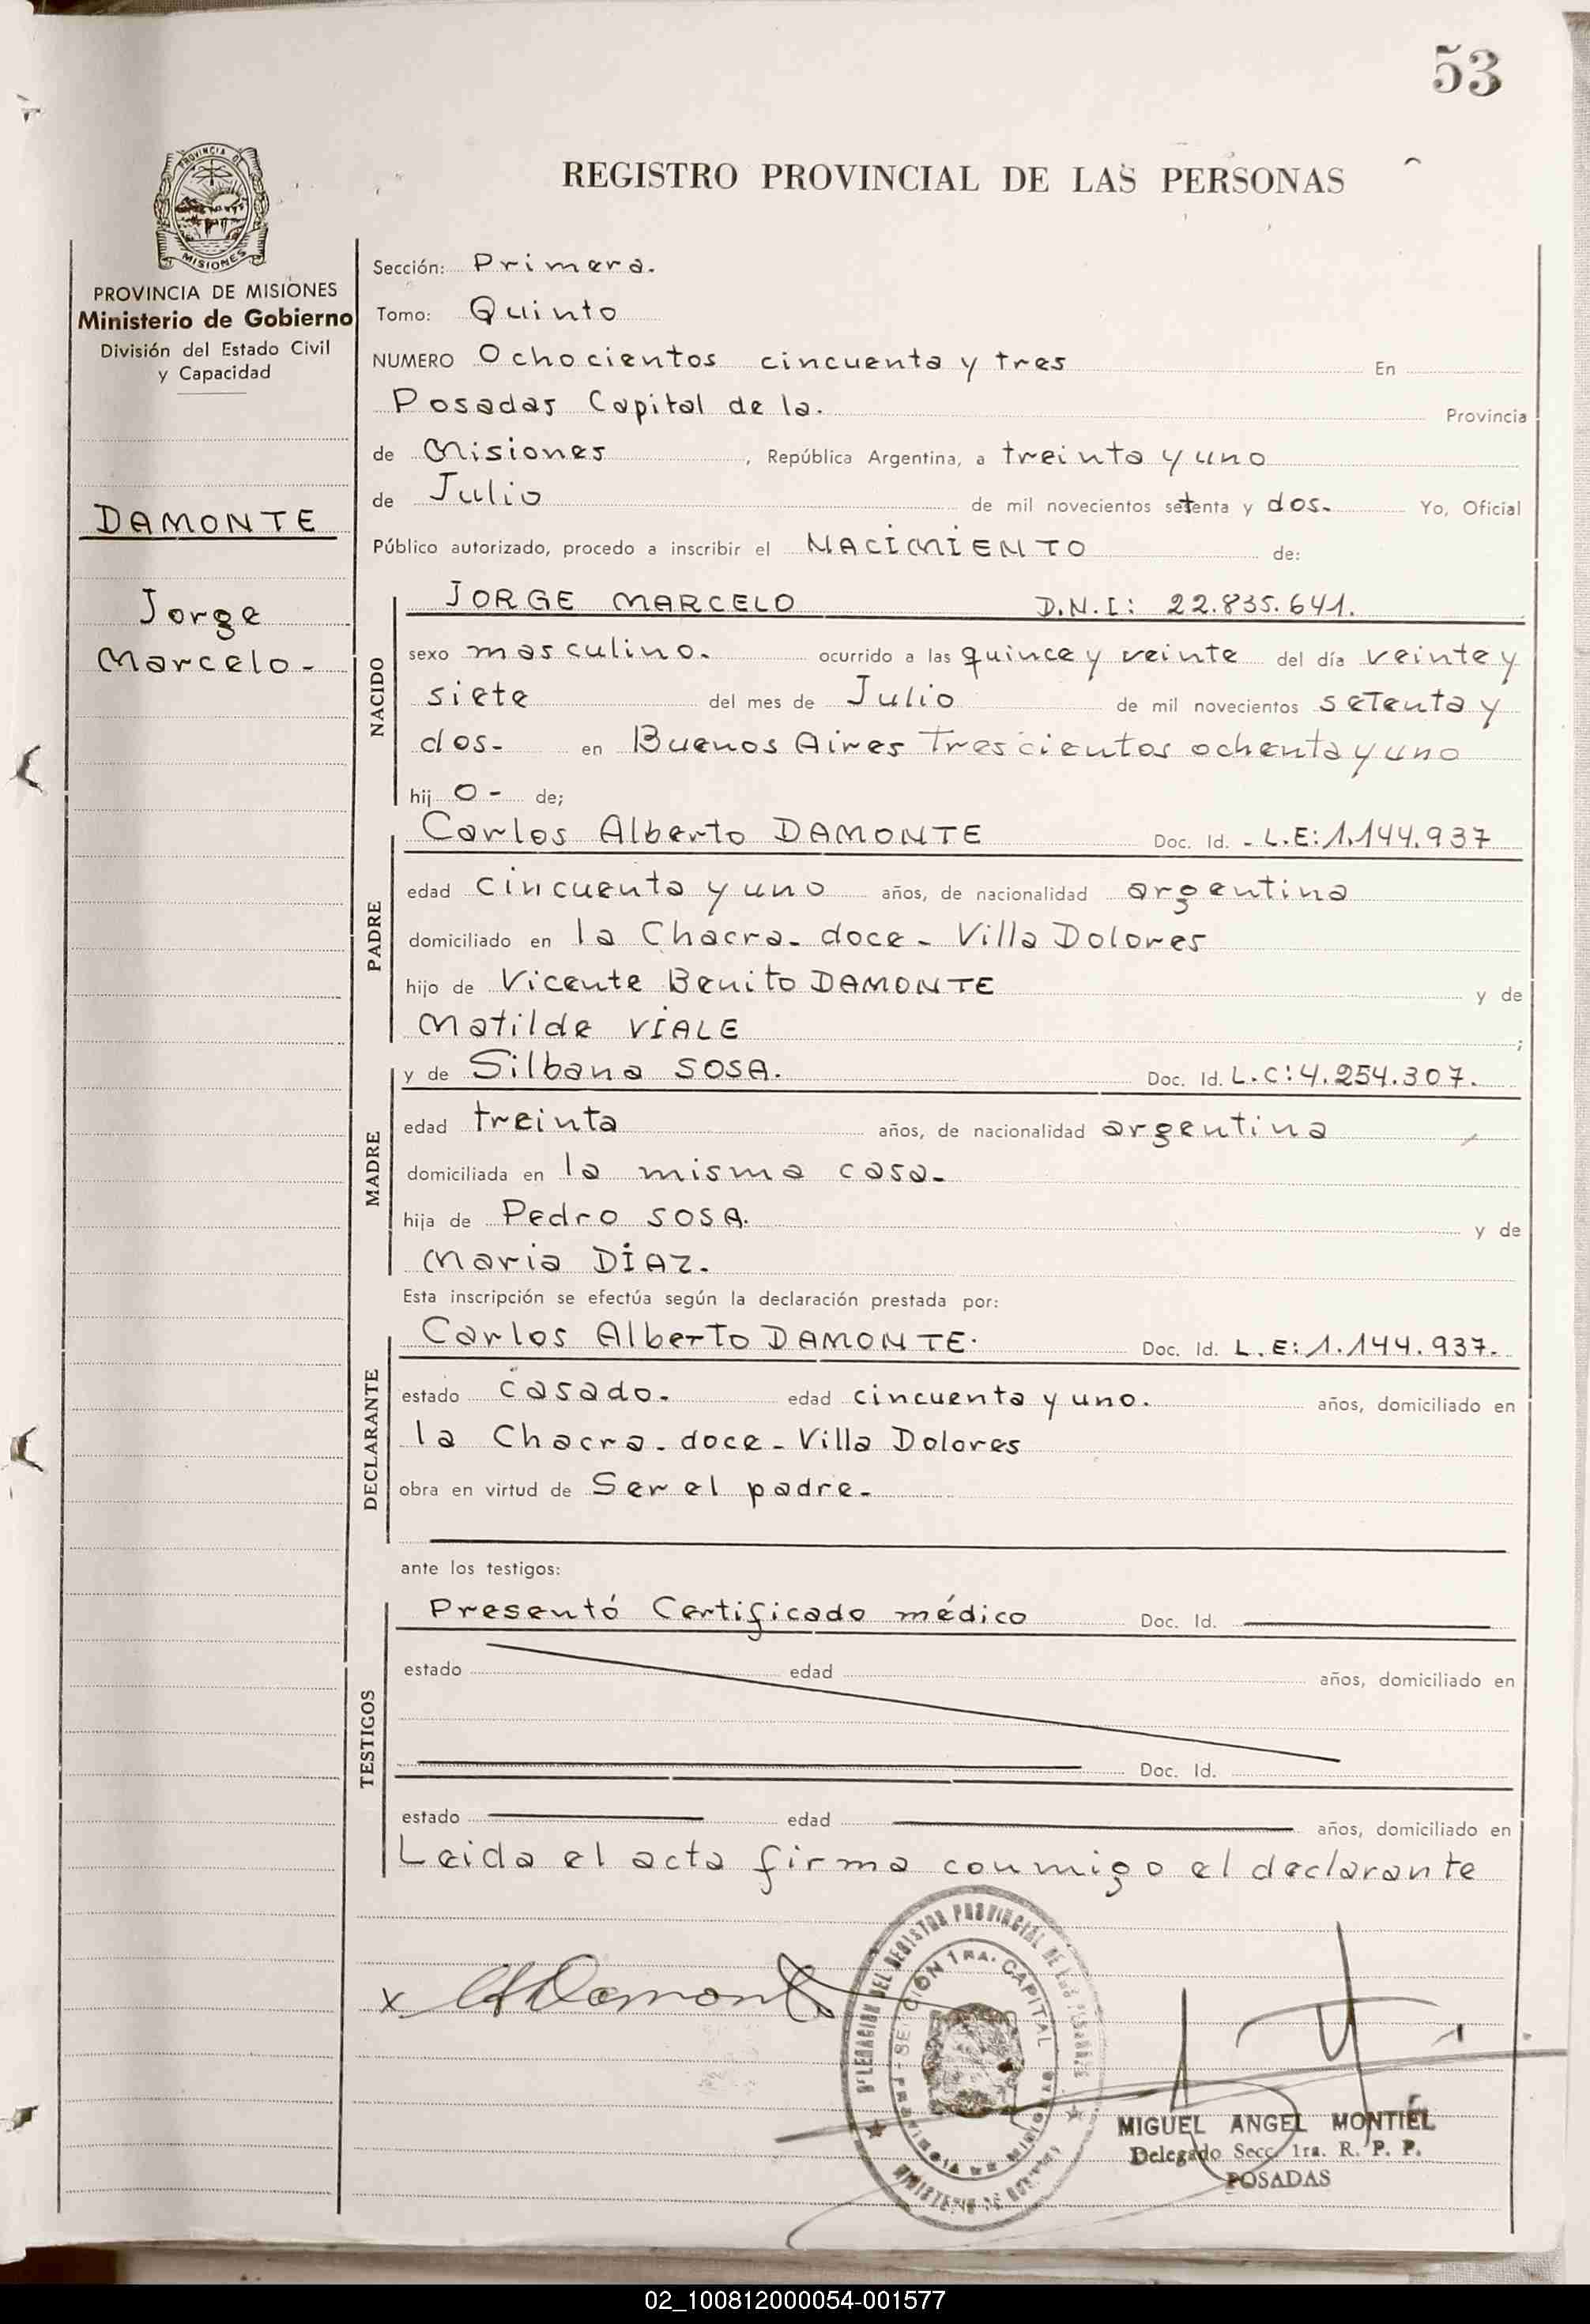 53
REGISTRO PROVINCIAL DE LAS PERSONAS
PROVINCIA DE
MISIONES
PROVINCIA DE MISIONES
Ministerio de Gobierno
División del Estado Civil
y Capacidad
DAMONTE
Jorge
Marcelo-
Sección: Primera.
Tomo: Quinto
NUMERO Ochocientos cincuenta y tres En
Posadas Capital de la. Provincia
de Misiones, República Argentina, a treinta y uno
de Julio de mil novecientos setenta y dos. Yo, Oficial
Público autorizado, procedo a inscribir el NACIMIENTO de:
NACIDO
JORGE MARCELO D.N.I: 22.835.641.
sexo masculino. ocurrido a las quince y veinte del día veinte y
siete del mes de Julio de mil novecientos setenta y
dos- en Buenos Aires Trescientos ochenta y uno
hijo- de;
PADRE
Carlos Alberto DAMONTE Doc. Id. - L.E: 1.144.937
edad cincuenta y uno años, de nacionalidad argentina
domiciliado en la Chacra- doce- Villa Dolores
hijo de Vicente Benito DAMONTE y de
Matilde VIALE ;
MADRE
y de Silbana SOSA. Doc. Id. L.C: 4.254.307.
edad treinta años, de nacionalidad argentina
domiciliada en la misma casa-
hija de Pedro SOSA. y de
Maria DÍAZ.
Esta inscripción se efectúa según la declaración prestada por:
DECLARANTE
Carlos Alberto DAMONTE. Doc. Id. L.E: 1.144.937-
estado casado- edad cincuenta y uno. años, domiciliado en
la Chacra- doce- Villa Dolores
obra en virtud de Ser el padre-
ante los testigos:
TESTIGOS
Presentó Certificado médico Doc. Id.
estado edad años, domiciliado en
Doc. Id.
estado edad años, domiciliado en
Leida el acta firma conmigo el declarante
x Damonte
DELEGACION DEL REGISTRO PROVINCIAL DE LAS PERSONAS
SECCION 1RA. CAPITAL
PROVINCIA DE MISIONES
MINISTERIO DE GOBIERNO
MIGUEL ANGEL MONTIEL
Delegado Secc. 1ra. R. P. P.
POSADAS
02_100812000054-001577